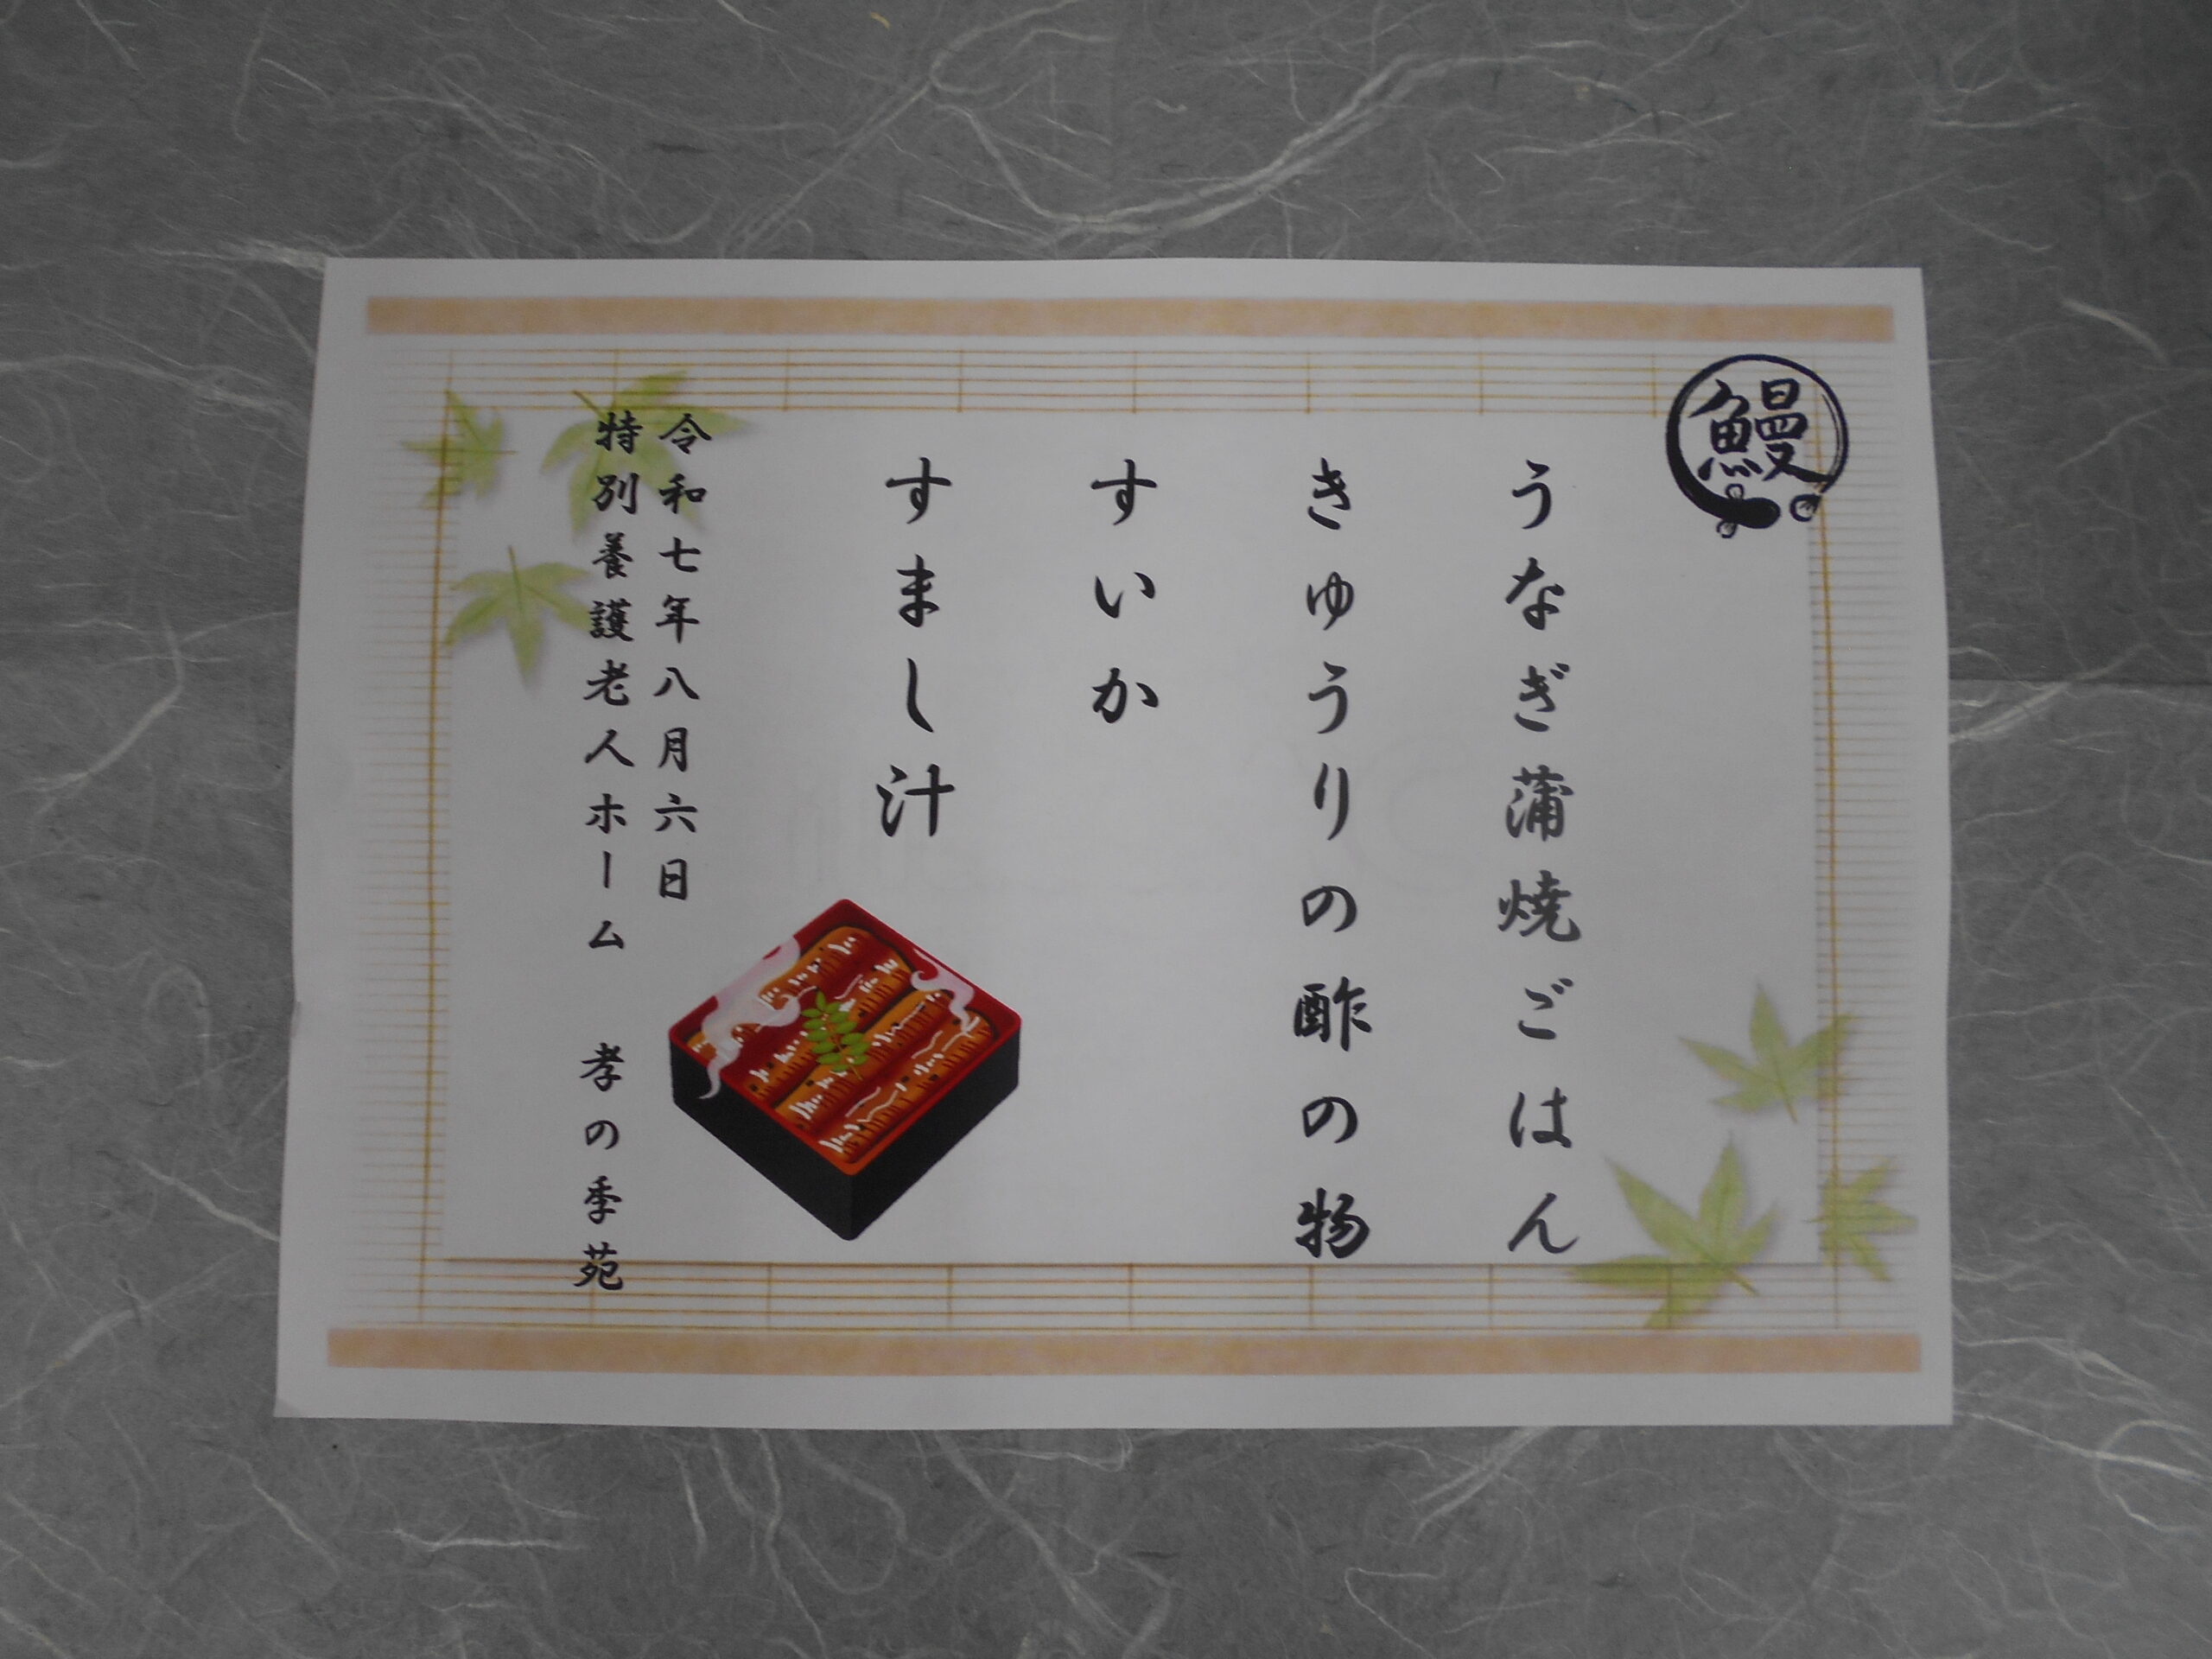 鰻
うなぎ蒲焼ごはん
きゅうりの酢の物
すいか
すまし汁
令和七年八月六日
特別養護老人ホーム 孝の季苑